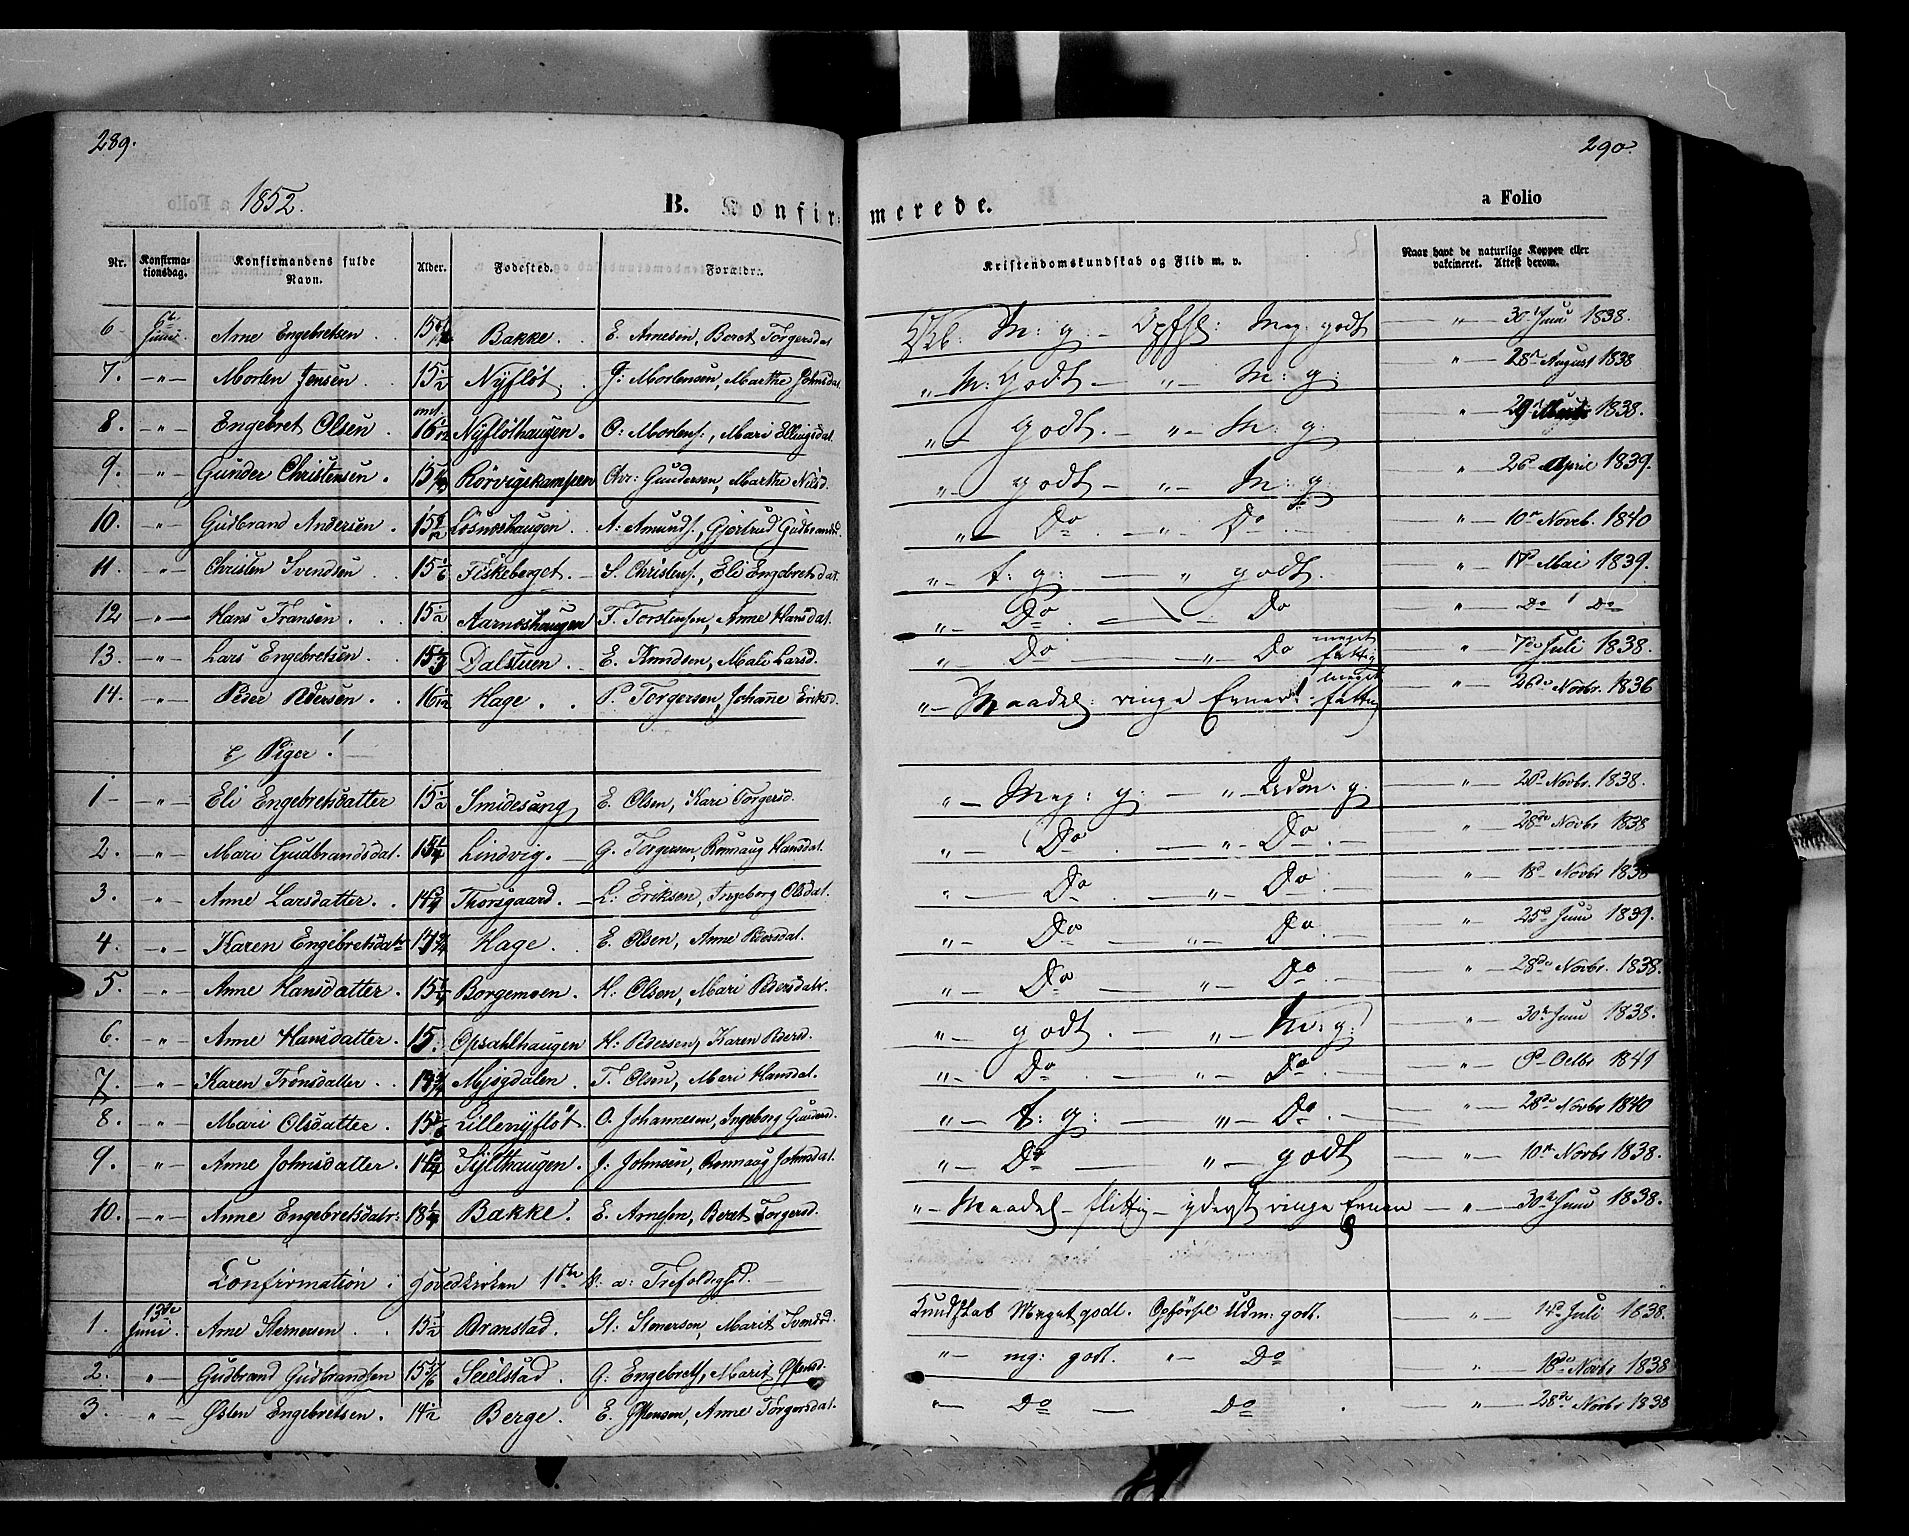 289.
290.
1852.
B. Konfir- merede.
a Folio
Nr. Konfirma-tionsdag. Konfirmandens fulde Navn. Alder. Fødested. Forældr. Kristendomskundskab og Flid m. v. Naar havt de naturlige Kopper eller vakcineret. Attest derom.
6 6te Juni Arne Engebretsen 15 Bakke. E. Arnesen, Beret Torgersdat M: g: — Opfsl: Meg: godt " 30te Juni 1838.
7. -"- Morten Jensen 15½ Nyfløt. J: Mortensen, Marthe Johnsdat "- M: Godt — "- M: g: " 28n August 1838
8. -"- Engebret Olsen 16 Nyfløthaugen. O: Mortens:, Mari Ellingsdat. "- Godt. — "- M: g: " 1838.
9. -"- Gunder Christensen. 15 Rørvigskampen Chr: Gundersen, Marthe Nilsd. "- godt — "- M: g: " 26d April 1839.
10. -"- Gudbrand Andersen. 15 Løsnæshaugen. A: Amunds., Gjertrud Gudbrandsd. "- Do "- Do. -"- 10n Noveb. 1840
11. -"- Christen Svendsen 15 Fiskeberget. S. Christens., Eli Engebretsdat. "- t: g: — " godt. -"- 17d Mai 1839.
12 -"- Hans Fransen. 15½ Aarnæshaugen F. Torstensen, Anne Hansdat. "- Do. — Do -"- Do Do
13. -"- Lars Engebretsen. 15 Dalstuen. E. Knudsen, Mali Larsd. "- Do — "- Do meget fattig -"- 7de Juli 1838.
14. -"- Peder Pedersen. 16 Hage. P. Torgersen, Johanne Eriksd. "- Maadel: ringe Evner! meget fattig -"- 26de Novbr. 1836
Piger!
1 -"- Eli Engebretsdatter 15½ Smidesang E. Olsen, Kari Torgersd. "- Meg: g: — "- Udm: g: " 28d Novbr. 1838.
2. -"- Mari Gudbrandsdat. 15¼ Lindvig. G. Torgersen, Rønnaug Hansdat. " Do. — "- Do -"- 28de Novbr 1838
3. -"- Anne Larsdatter. 14¾ Thorsgaard. L: Eriksen, Ingeborg Olsdat. "- Do. — "- Do. -"- 18d Novbr 1838
4. -"- Karen Engebretsdatr 14¾ Hage. E. Olsen, Anne Pedersdat. "- Do — "- Do. -"- 25d Juni 1839.
5. -"- Anne Hansdatter. 15¼ Borgemoen. H: Olsen, Mari Pedersdatr. "- Do Do. -"- 28de Novbr. 1838.
6 -"- Anne Hansdatter. 15. Opsahlhaugen H: Pedersen, Karen Pedersd. "- godt. — "- M: g: -"- 30te Juni 1838.
7. -"- Karen Tronsdatter. Mjøgdalen. T. Olsen, Mari Hansdat. "- Do — "- Do. -"- Octbr 1841
8. -"- Mari Olsdatter. 15 Lillenyfløt O. Johannesen, Ingeborg Gundersd. "- t: g: — "- Do. -"- 28de Novbr 1840
9. -"- Anne Johnsdatter. 14¾ Sylthaugen. J: Johnsen, Rønnaug Johnsdat. "- Do — "- godt -"- 10de Novbr 1838.
10. -"- Anne Engebretsdatr. 18¼ Bakke. E. Arnesen, Beret Torgersd. "- Maadel — flittig — yderst ringe Evner -"- 30te Juni 1838.
Confirmation i Hovedkirken 1ste S: a: Trefoldighd.
1. 13de Juni. Arne Stenersen. 15½ Branstad. St: Stenersen, Marit Svensd. Kundskab Meget godt. Opførsel Udm: godt. " 14d Juli 1838.
2. " Gudbrand Gudbrandsen 15 Seielstad. G: Engebrets., Marit Østensd. "- mg: godt. "- Do " 18de Novbr 1838
3. -"- Østen Engebretsen. 14½ Berge. E. Østensen, Anne Torgersdat. "- Do — Do -"- 28de Novbr 1838